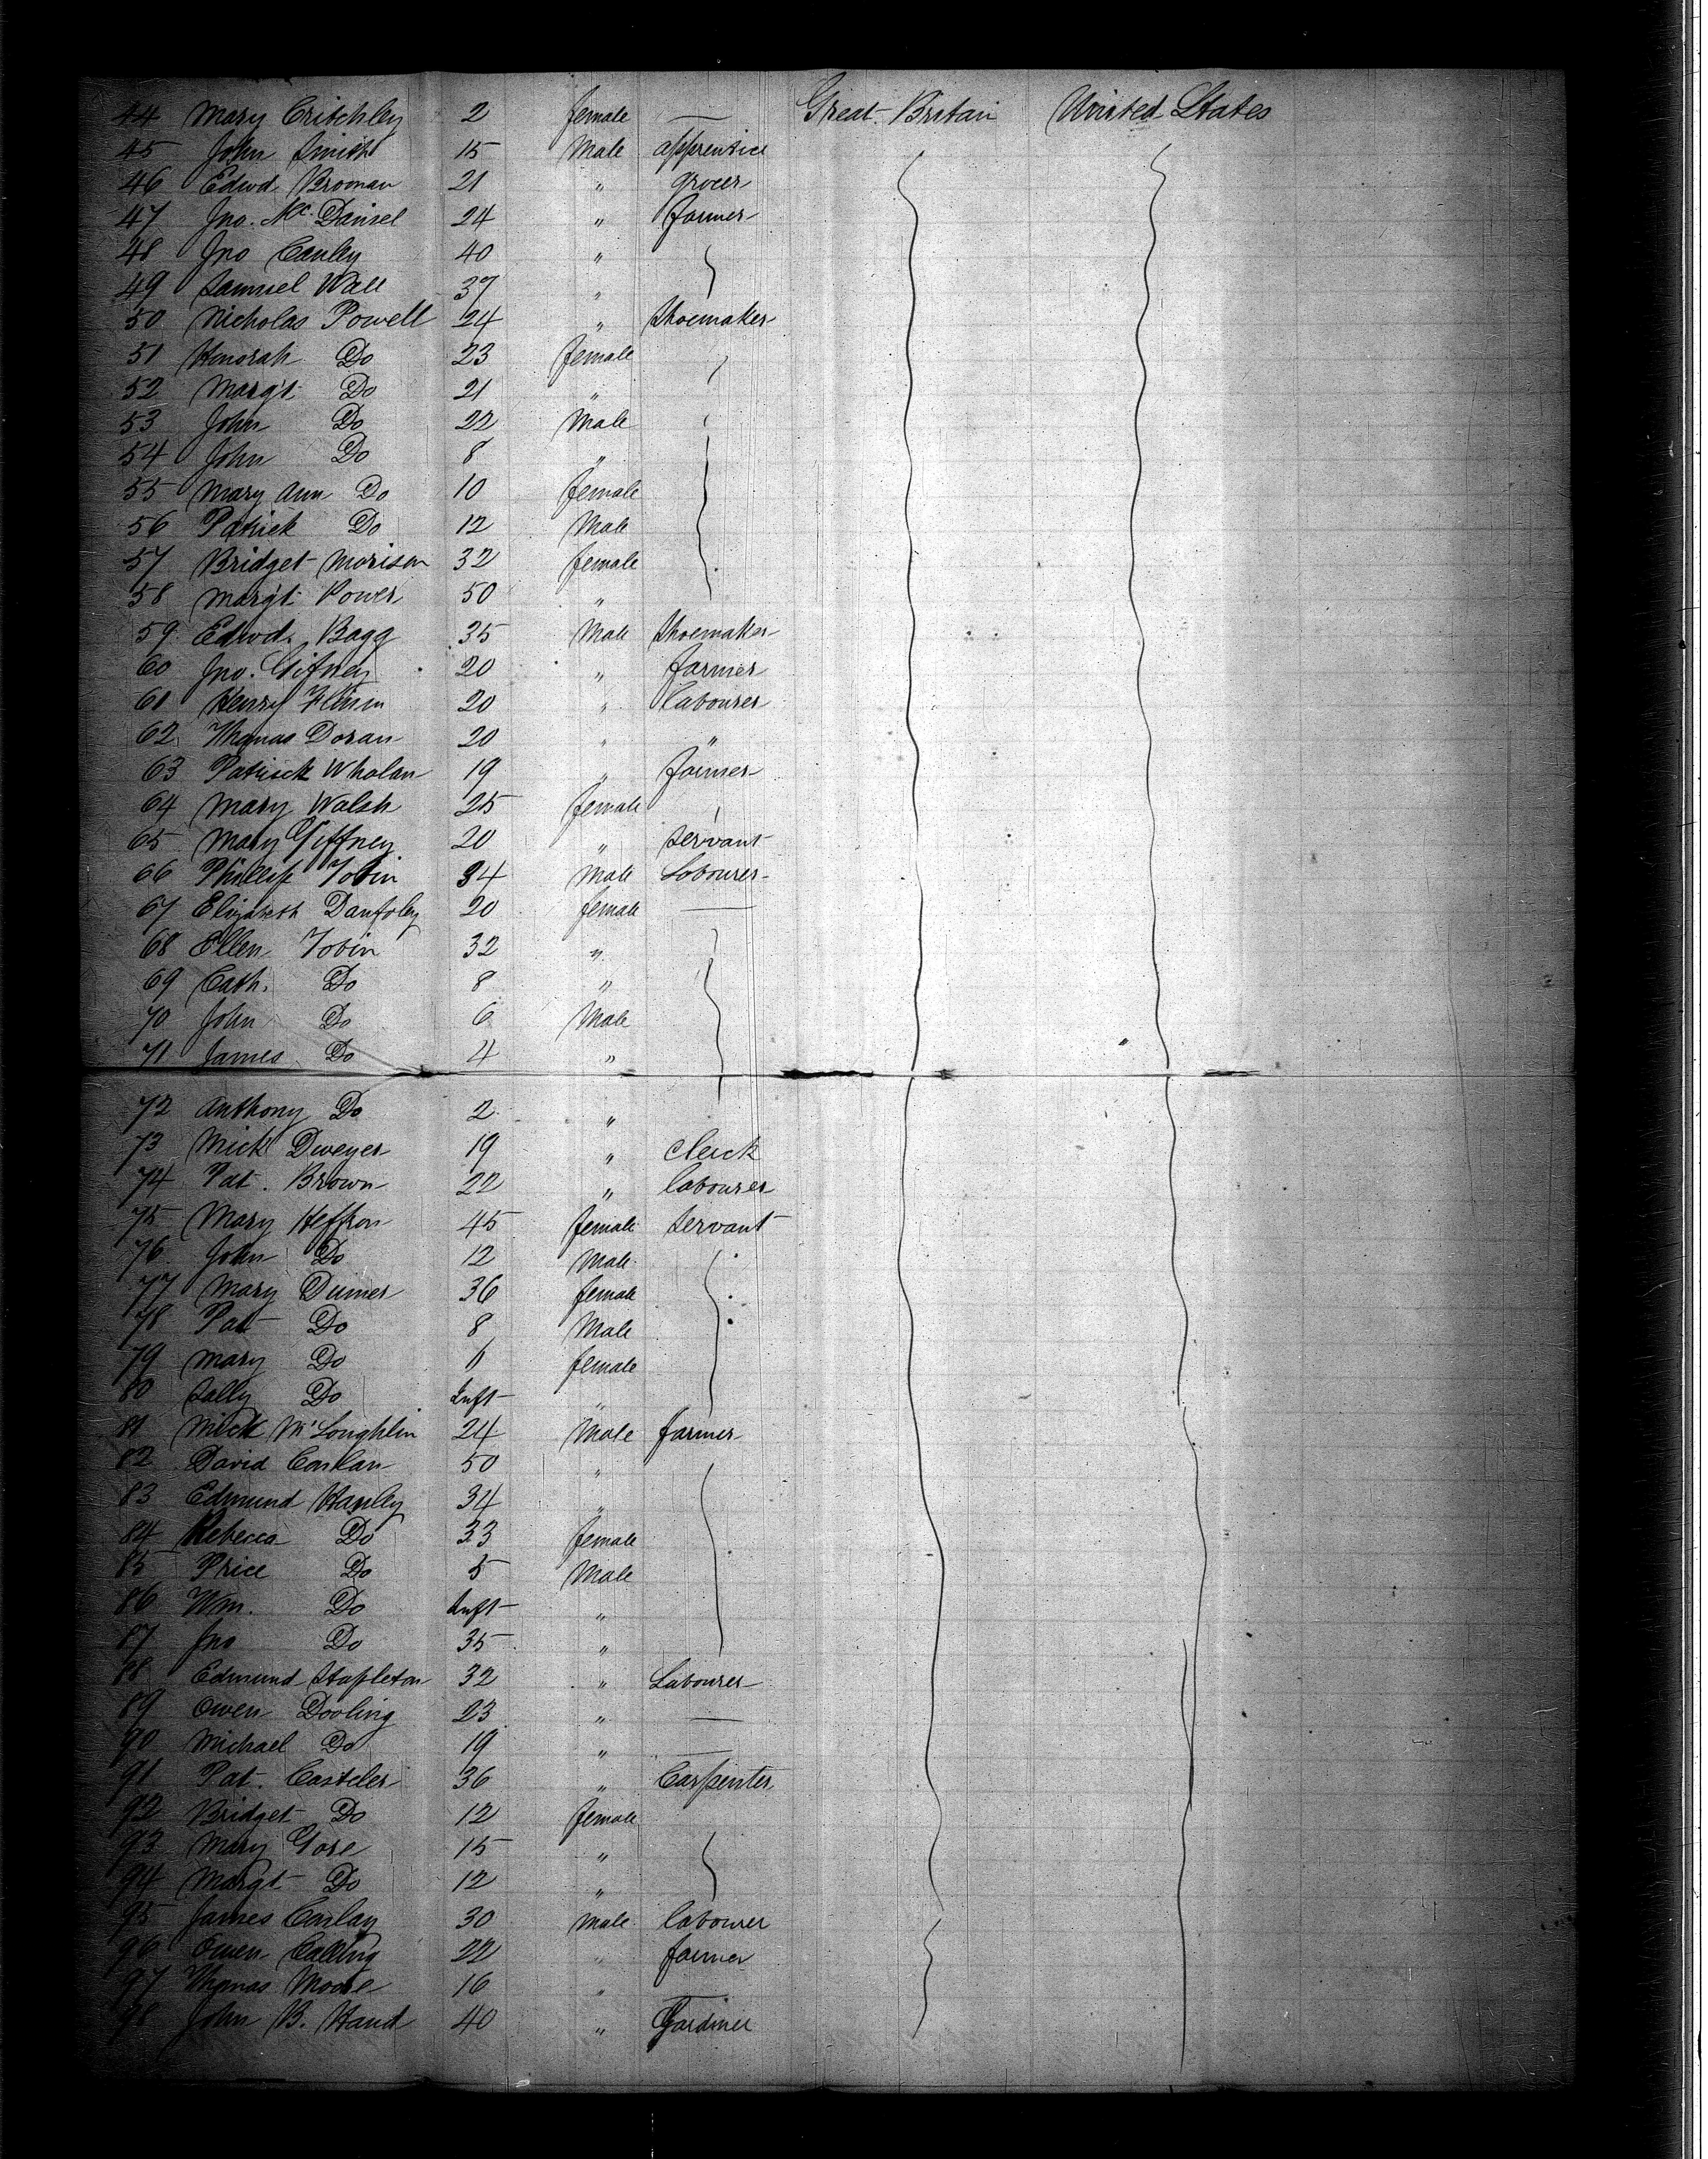 44 Mary Critchley 2 female — Great Britain United States
45 John Smith 15 Male apprentice
46 Edwd Broman 21 " grocer
47 Jno. Mc Daniel 24 " farmer
48 Jno Canley 40 "
49 Samuel Wall 37 "
50 Nicholas Powell 24 " Shoemaker
51 Honorah Do 23 female
52 Margt Do 21 "
53 John Do 22 Male
54 John Do 8 "
55 Mary Ann Do 10 female
56 Patrick Do 12 Male
57 Bridget Morison 32 female
58 Margt Power 50 "
59 Edwd. Bagg 35 Male Shoemaker
60 Jno. Gifney 20 " farmer
61 Henry 20 " labourer
62 Thomas Doran 20 " "
63 Patrick Whalan 19 " farmer
64 Mary Walsh 25 female
65 Mary Giffney 20 " servant
66 Phillip Tobin 34 Male Labourer
67 Elizabeth Danfoley 20 female —
68 Ellen Tobin 32 "
69 Cath. Do 8 "
70 John Do 6 Male
71 James Do 4 "
72 Anthony Do 2 "
73 Mick Dweyer 19 " Clerk
74 Pat. Brown 22 " labourer
75 Mary Heffron 45 female servant
76 John Do 12 Male
77 Mary Dumer 36 female
78 Pat Do 8 Male
79 Mary Do 6 female
80 Sally Do Inft "
81 Mick McLoughlin 24 Male farmer
82 David Conlan 50 "
83 Edmund Hanley 34 "
84 Rebecca Do 33 female
85 Price Do 5 Male
86 Wm. Do Inft "
87 Jno Do 35 "
88 Edmund Stapleton 32 " Labourer
89 Owen Dooling 23 " —
90 Michael Do 19 " —
91 Pat. Casteler 36 " Carpenter
92 Bridget Do 12 female
93 Mary Gore 15 "
94 Margt Do 12 "
95 James Conlay 30 male labourer
96 Owen 22 " farmer
97 Thomas Moore 16 " —
98 John B. Hand 40 " Gardiner